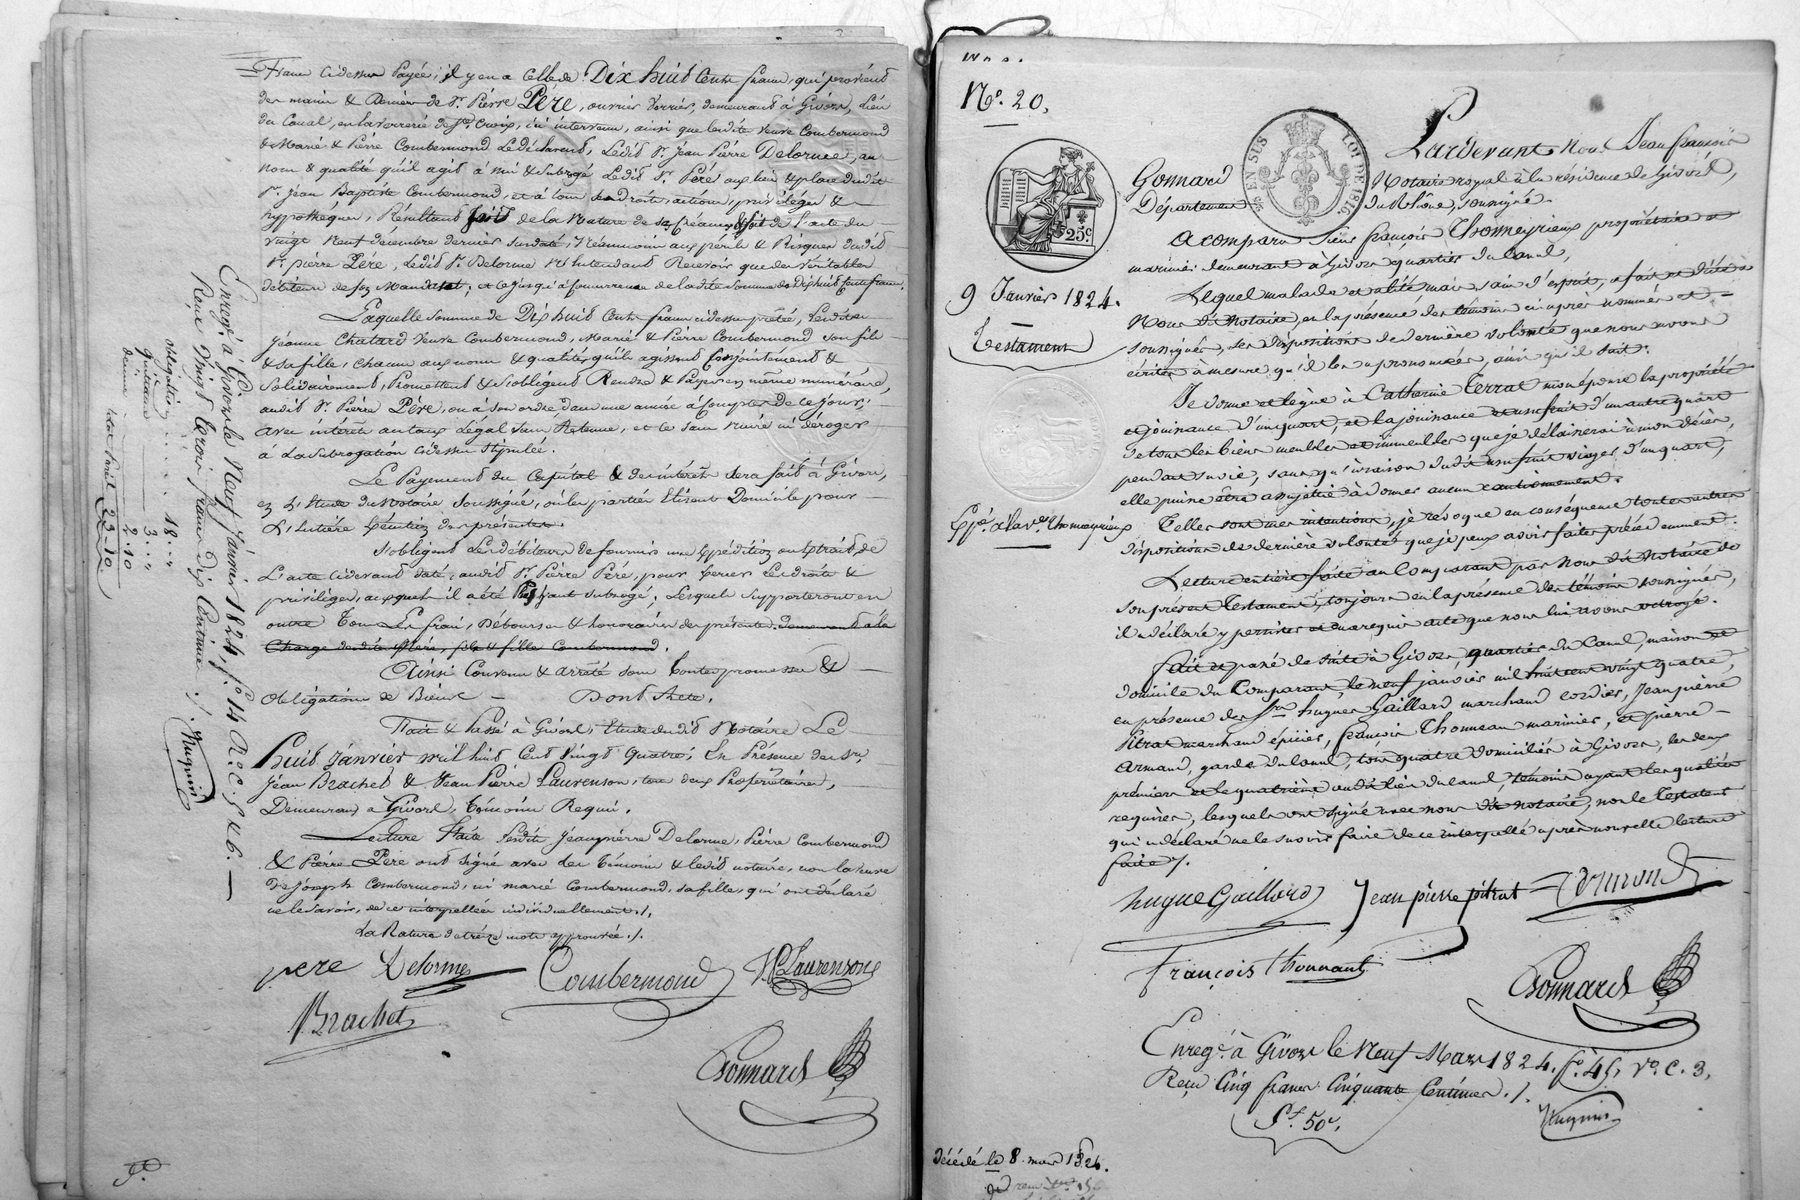 francs cidessus Payée, il y en a Celle de Dix huit Cents francs, qui provient
des mains & Deniers de Sr. Pierre Père, ouvrier Verrier, demeurant à Givors, Lieu
du Canal, en la verrerie de Ste. Croix, ici intervenu, ainsi que ladite Veuve Combermond
& Marie & Pierre Combermond Le déclarent, Ledit Sr. Jean Pierre Delorme, au
nom & qualité qu'il agit à mis & Subrogé Ledit Sr. Père aux lieu & place dudit
Sr. Jean Baptiste Combermond, et à tous ses droits, actions, privilèges &
hypothèques, Résultant soit de la Nature de sa Créance & soit de l'acte du
vingt Neuf décembre dernier Susdaté, Néanmoins aux périls & Risques dudit
Sr. pierre Père, Ledit Sr. Delorme n'Entendant Recevoir que des Véritables
débiteurs de son Mandat, et ce jusqu'à fourrance de ladite Somme de dix huit Cents francs.
Laquelle somme de Dix huit Cents francs cidessus prêtée, Lesdits
Jeanne Chatard Veuve Combermond, Marie & Pierre Combermond Son fils
& sa fille, Chacun aux noms & qualités qu'ils agissent Conjointement &
Solidairement, Promettent & S'obligent Rendre & Payer en même numéraire,
audit Sr. Pierre Père, ou à Son ordre, dans une année à Compter de Ce jour,
avec intérêts au taux Légal Sans Retenue, et ce sans nuire ni déroger
à La Subrogation cidessus Stipulée.
Le Payement du Capital & des intérêts Sera fait à Givors,
en L'Etude du Notaire Soussigné, où les parties Elisent Domicile pour
L'Entière Exécution des présentes.
S'obligent Les débiteurs de fournir une Expédition ou Extrait de
L'acte Cidevant daté, audit Sr. Pierre Péré, pour Servir Les droits &
privilèges, auxquels il a été Subrogé; Lesquels Supporteront en
outre Tous Les frais, Débours & honoraires des présentes. demeurant à la
Charge desdits Mère, fils & fille Combermond.
Ainsi Convenu & arrêté Sous toutes promesses &
Obligations de Biens. Dont Acte.
Fait & Passé à Givors, Etude dudit Notaire Le
huit Janvier mil huit Cent Vingt Quatre, En Présence des Srs.
Jean Brachet & Jean Pierre Laurenson, tous deux Propriétaires,
Demeurans à Givors, Témoins Requis.
Lecture Faite Lesdits Jean pierre Delorme, Pierre Combermond
& Pierre Père ont Signé avec Les Témoins & Ledit notaire, non la veuve
de Joseph Combermond, ni Marie Combermond, Sa fille, qui ont déclaré
ne le savoir, de ce interpellées individuellement ./.
La Rature de treize mots approuvée ./.
pere Delorme Combermond JP Laurenson
Brachet
Gonnard
Enregé. à Givors le Neuf Janvier 1824, f°. 14 R°. C. 5 & 6.
Reçu Vingt trois francs dix Centimes ./.
obligation . . . 18. "
quittance . . . 3. "
dixme . . . 2. 10
total Perçu 23. 10
Hugnin
N°. 20.
25c.
EN SUS
LOI DE 1816.
9 Janvier 1824.
Testament
Expé. à la ve. Thomeyrieux
Pardevant Nous Jean françois
Gonnard Notaire royal à la résidence de Givors,
Département du Rhône, soussigné.
A comparu Sieur françois Thomeyrieux propriétaire et
marinier demeurant à Givors quartier du Canal,
Lequel malade et alité mais sain d'esprit, a fait et dicté à
Nous dit Notaire, en la présence des témoins ci après nommés et
soussignés, ses dispositions de dernière volonté que nous avons
écrites à mesure qu'il les a prononcées, ainsi qu'il suit:
Je donne et lègue à Catherine Terrat mon épouse la propriété
et jouissance d'un quart, et la jouissance et usufruit d'un autre quart
de tous les biens meubles et immeubles que je délaisserai à mon décès,
pendant sa vie, sans qu'à raison dudit usufruit viager d'un quart,
elle puisse être assujétie à donner aucun cautionnement.
Telles sont mes intentions, je révoque en conséquence toutes autres
dispositions de dernière volonté que je peux avoir faites précédemment.
Lecture entière faite au Comparant par Nous dit Notaire de
son présent Testament, toujours en la présence des témoins soussignés,
il a déclaré y persister et a requis acte que nous lui avons octroyé.
fait et passé de suite à Givors, quartier du Canal, maison et
domicile du Comparant, le neuf janvier mil huit cent vingt quatre,
en présence des Srs. hugues Gaillard marchand cordier, Jean pierre
Pitrat marchand épicier, françois Thonneau marinier, et pierre
Armand, garde du Canal, tous quatre domiciliés à Givors, les deux
premiers et le quatrième audit lieu du Canal, témoins ayant les qualités
requises, lesquels ont signé avec nous dit notaire, non le Testateur
qui a déclaré ne le savoir faire de ce interpellé après nouvelle lecture
faite ./.
hugue Gaillard Jean pierre pitrat Armand
François thonnaut
Gonnard
Enregé. à Givors le Neuf Mars 1824. f°. 45, V°. C. 3,
Reçu Cinq francs Cinquante Centimes ./.
5f. 50c.
Hugnin
Décédé le 8 mars 1824.